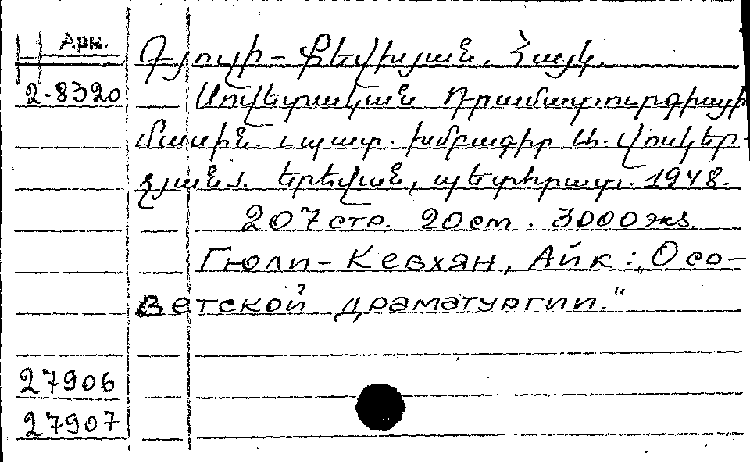 Арм.
Գյուլի-Քեվխյան. Հայկ.
2-8320
Սովետական դրամատուրգիայի
մասին. պատ. խմբագիր Ա. Ոսկեր-
չյան. Երևան, պետհրատ. 1948.
207 стр. 20 cm. 3000 экз.
Гюли-Кевхян, Айк: „О со-
ветской драматургии."
27906
27907